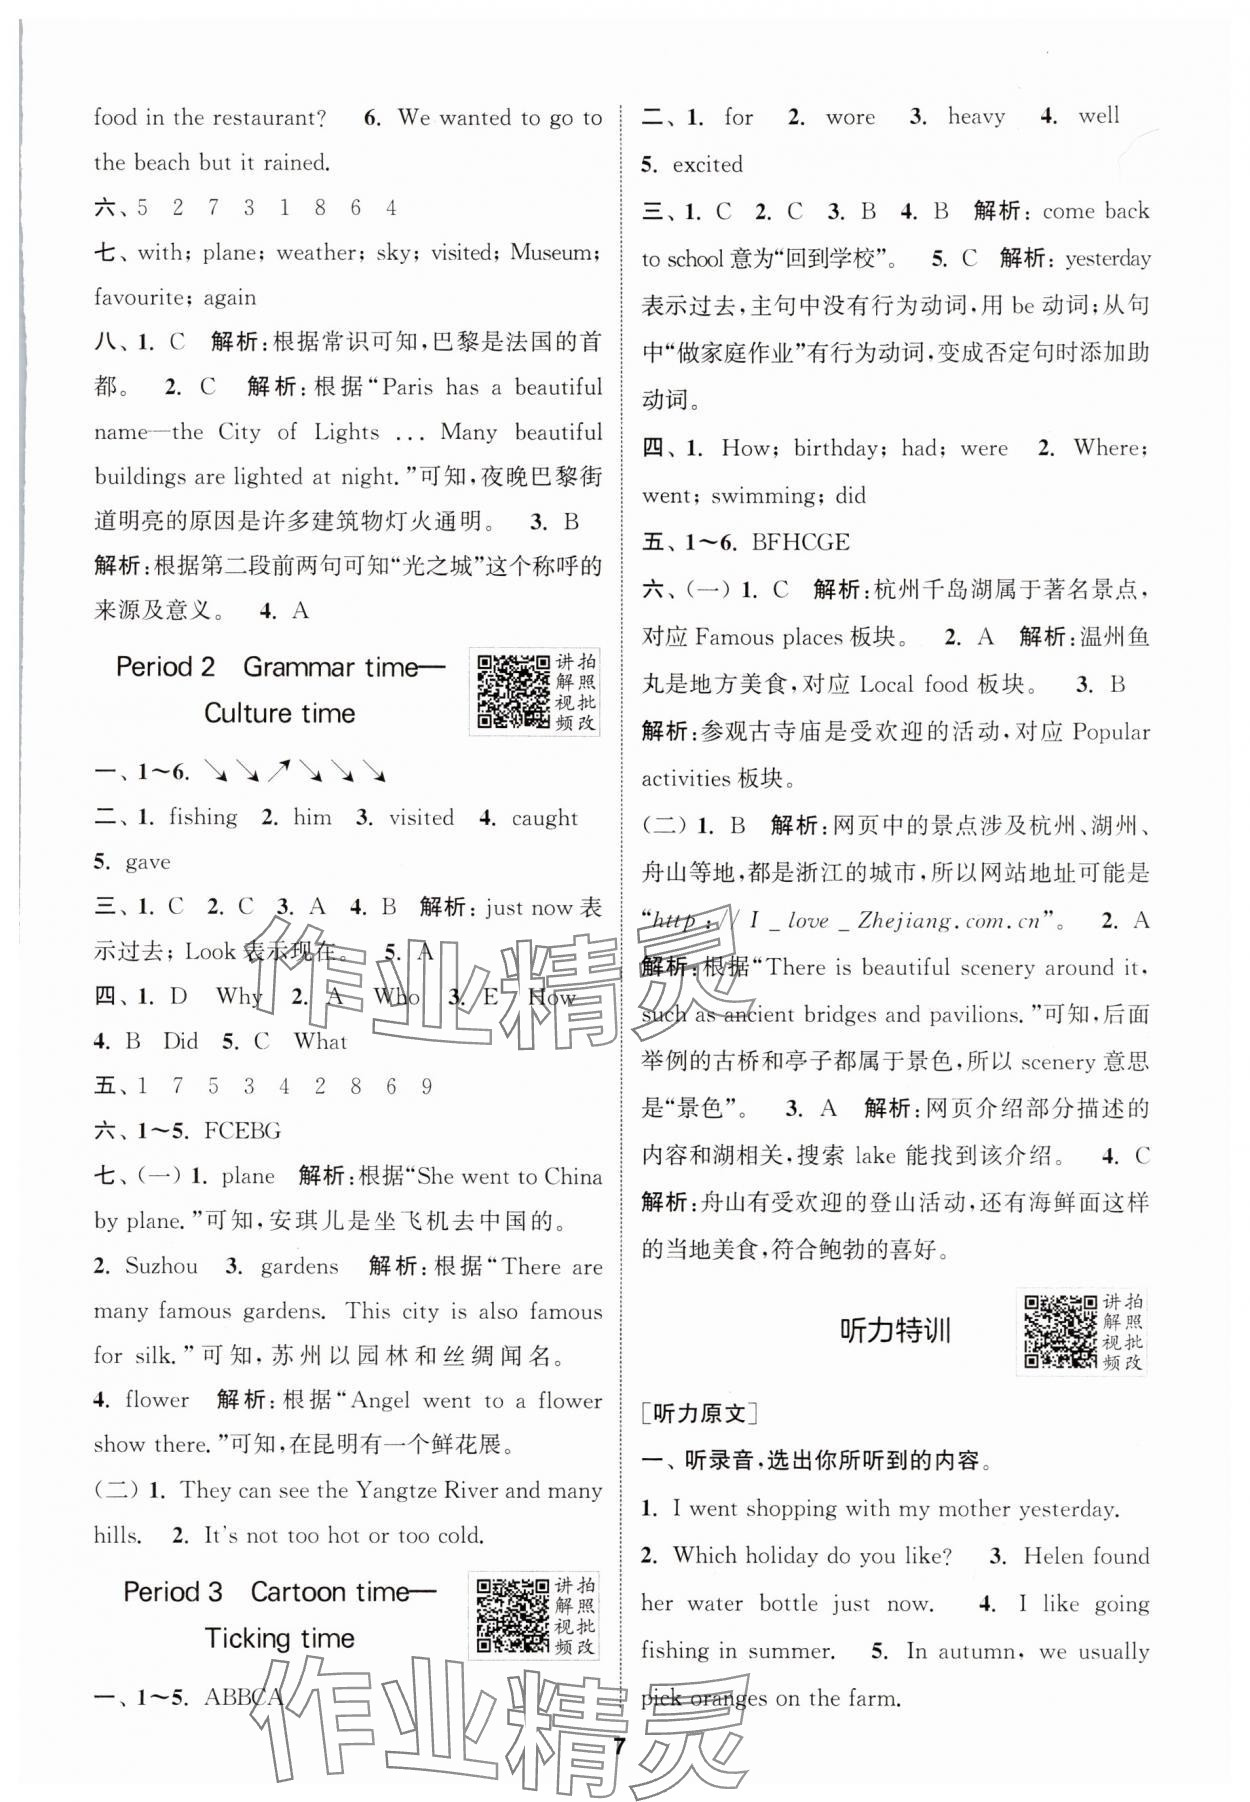 food in the restaurant? 6. We wanted to go to
the beach but it rained.
六、5 2 7 3 1 8 6 4
七、with; plane; weather; sky; visited; Museum;
favourite; again
八、1. C 解析:根据常识可知,巴黎是法国的首
都。 2. C 解析:根据“Paris has a beautiful
name—the City of Lights ... Many beautiful
buildings are lighted at night.”可知,夜晚巴黎街
道明亮的原因是许多建筑物灯火通明。 3. B
解析:根据第二段前两句可知“光之城”这个称呼的
来源及意义。 4. A
Period 2 Grammar time—
Culture time
讲拍
解照
视批
频改
一、1~6. ↘ ↘ ↗ ↘ ↘ ↘
二、1. fishing 2. him 3. visited 4. caught
5. gave
三、1. C 2. C 3. A 4. B 解析:just now表
示过去;Look表示现在。 5. A
四、1. D Why 2. A Who 3. E How
4. B Did 5. C What
五、1 7 5 3 4 2 8 6 9
六、1~5. FCEBG
七、(一)1. plane 解析:根据“She went to China
by plane.”可知,安琪儿是坐飞机去中国的。
2. Suzhou 3. gardens 解析:根据“There are
many famous gardens. This city is also famous
for silk.”可知,苏州以园林和丝绸闻名。
4. flower 解析:根据“Angel went to a flower
show there.”可知,在昆明有一个鲜花展。
(二)1. They can see the Yangtze River and many
hills. 2. It's not too hot or too cold.
Period 3 Cartoon time—
Ticking time
讲拍
解照
视批
频改
一、1~5. ABBCA
二、1. for 2. wore 3. heavy 4. well
5. excited
三、1. C 2. C 3. B 4. B 解析:come back
to school意为“回到学校”。 5. C 解析:yesterday
表示过去,主句中没有行为动词,用be动词;从句
中“做家庭作业”有行为动词,变成否定句时添加助
动词。
四、1. How; birthday; had; were 2. Where;
went; swimming; did
五、1~6. BFHCGE
六、(一)1. C 解析:杭州千岛湖属于著名景点,
对应Famous places板块。 2. A 解析:温州鱼
丸是地方美食,对应Local food板块。 3. B
解析:参观古寺庙是受欢迎的活动,对应Popular
activities板块。
(二)1. B 解析:网页中的景点涉及杭州、湖州、
舟山等地,都是浙江的城市,所以网站地址可能是
“http://I_love_Zhejiang.com.cn”。 2. A
解析:根据“There is beautiful scenery around it,
such as ancient bridges and pavilions.”可知,后面
举例的古桥和亭子都属于景色,所以scenery意思
是“景色”。 3. A 解析:网页介绍部分描述的
内容和湖相关,搜索lake能找到该介绍。 4. C
解析:舟山有受欢迎的登山活动,还有海鲜面这样
的当地美食,符合鲍勃的喜好。
听力特训
讲拍
解照
视批
频改
[听力原文]
一、听录音,选出你所听到的内容。
1. I went shopping with my mother yesterday.
2. Which holiday do you like? 3. Helen found
her water bottle just now. 4. I like going
fishing in summer. 5. In autumn, we usually
pick oranges on the farm.
7
作业精灵
作业精灵